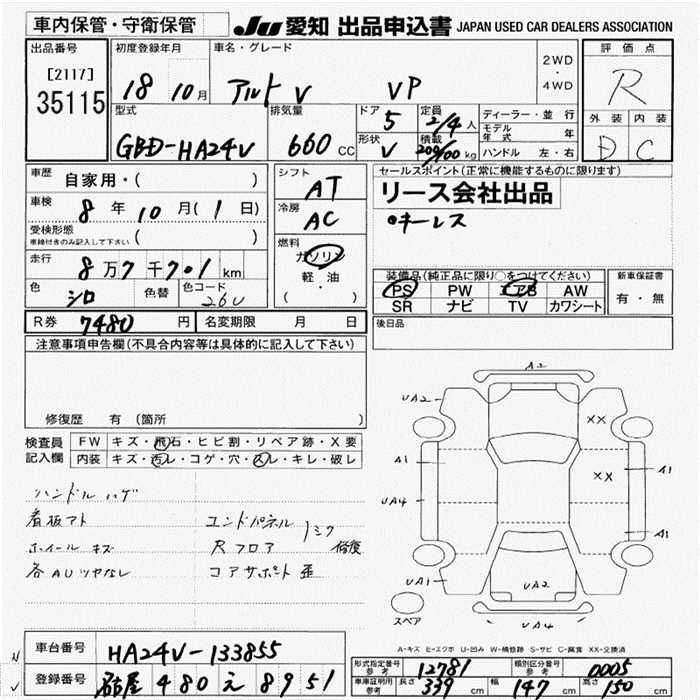 車内保管・守衛保管
JU 愛知 出品申込書 JAPAN USED CAR DEALERS ASSOCIATION
出品番号
[2117]
35115
初度登録年月
18 10月
車名・グレード
アルト V VP
2WD
・
4WD
評価点
R
外装 内装
D C
型式
GBD-HA24V
排気量
660 CC
ドア
5
形状
V
定員
2/4人
積載
200/100 kg
ディーラー・並行
モデル年式 年
ハンドル 左・右
車歴 自家用・( )
車検 8年10月(1日)
受検形態
車検付きのみ記入して下さい ( )
走行 8万7千701km
色 シロ 色替 色コード 26U
シフト
AT
冷房
AC
燃料
ガソリン
軽・油
( ・ )
セールスポイント(正常に機能するものに限ります)
リース会社出品
・キーレス
装備品(純正品に限り○をつけてください)
PS PW エアB AW
SR ナビ TV カワシート
新車保証書
有・無
R券 7480円 名変期限 月 日
後日品
注意事項申告欄(不具合内容等は具体的に記入して下さい)
修復歴 有 (箇所 )
検査員記入欄
FW キズ・飛石・ヒビ割・リペア跡・X要
内装 キズ・汚レ・コゲ・穴・スレ・キレ・破レ
ハンドル ハゲ
看板アト エンドパネル
ホイール キズ Rフロア
各AUツヤなし コアサポート 歪
修復
A2
UA2
XX
A1
XX
A1
UA4
A1
UA1
UA2
UA4
スペア
A-キズ E-エクボ U-凹み W-補修跡 S-サビ C-腐食 XX-交換済
車台番号 HA24V-133855
登録番号 名古屋 480 え 8951
形式指定番号 参考 12781 類別区分番号 参考 0005
車庫証明用 参考 長さ 339cm 幅 147cm 高さ 150cm